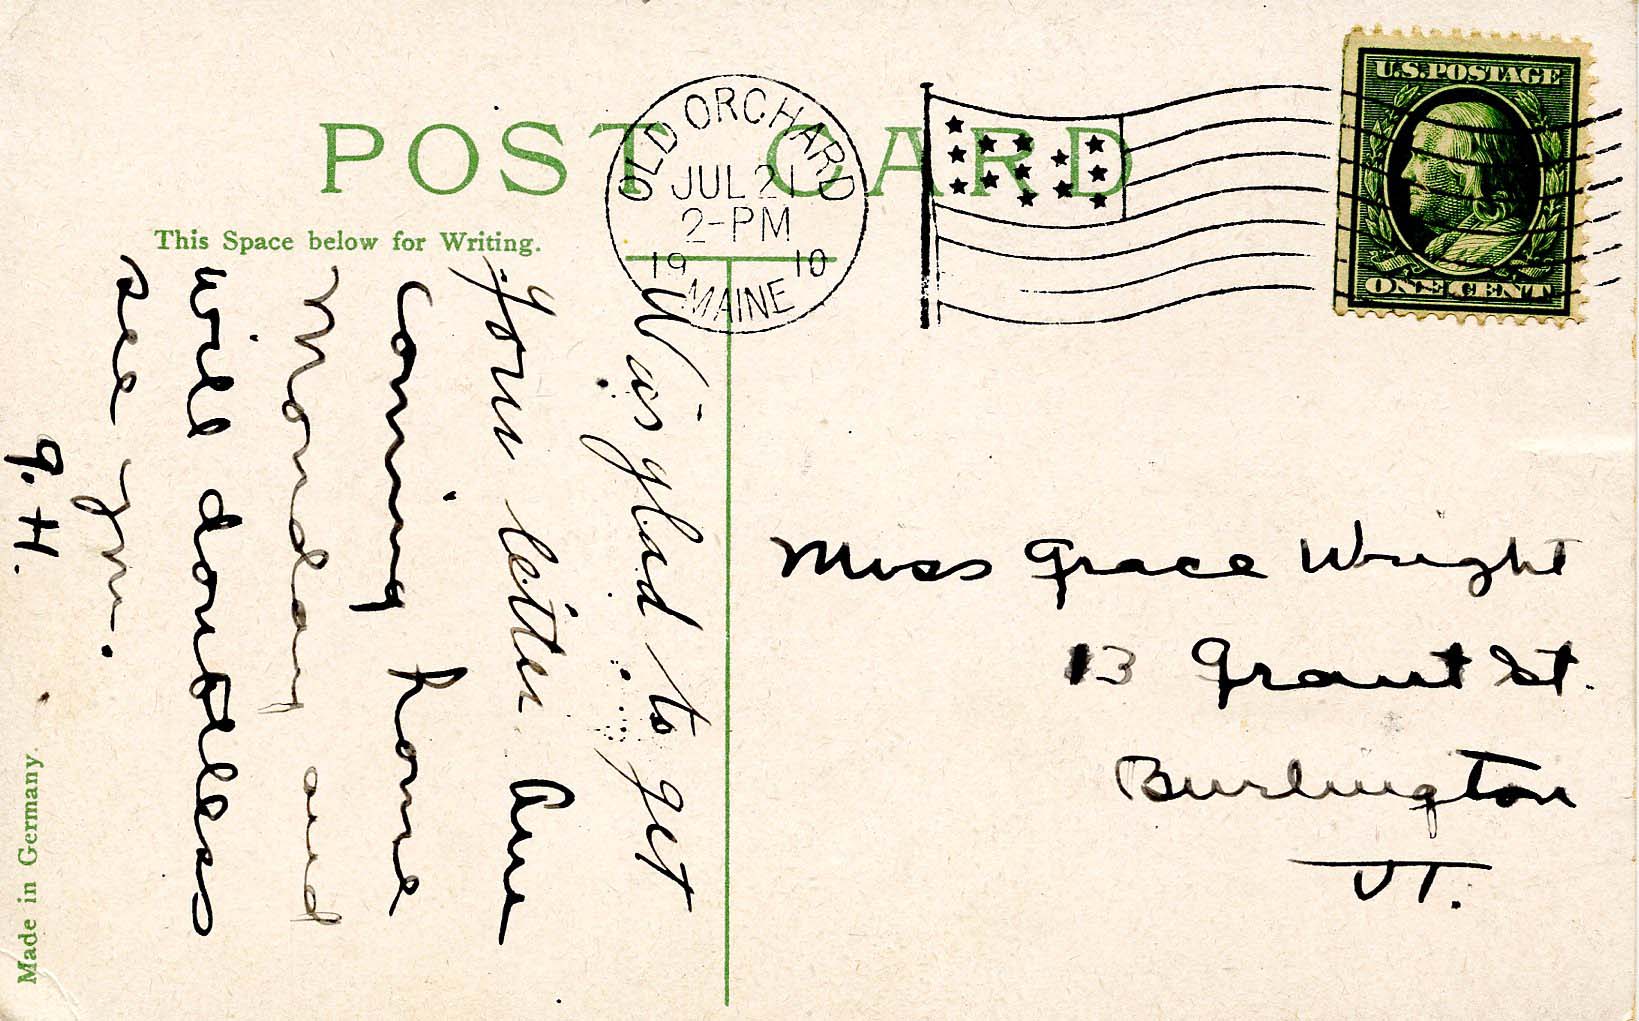 POST CARD
This Space below for Writing.
OLD ORCHARD
JUL 21
2-PM
19 10
MAINE
U.S. POSTAGE
ONE CENT
Was glad to get
your letter Am
coming home
Monday and
will doubtless
see you.
G. H.
Miss Grace Wright
13 Grant St.
Burlington
VT.
Made in Germany.